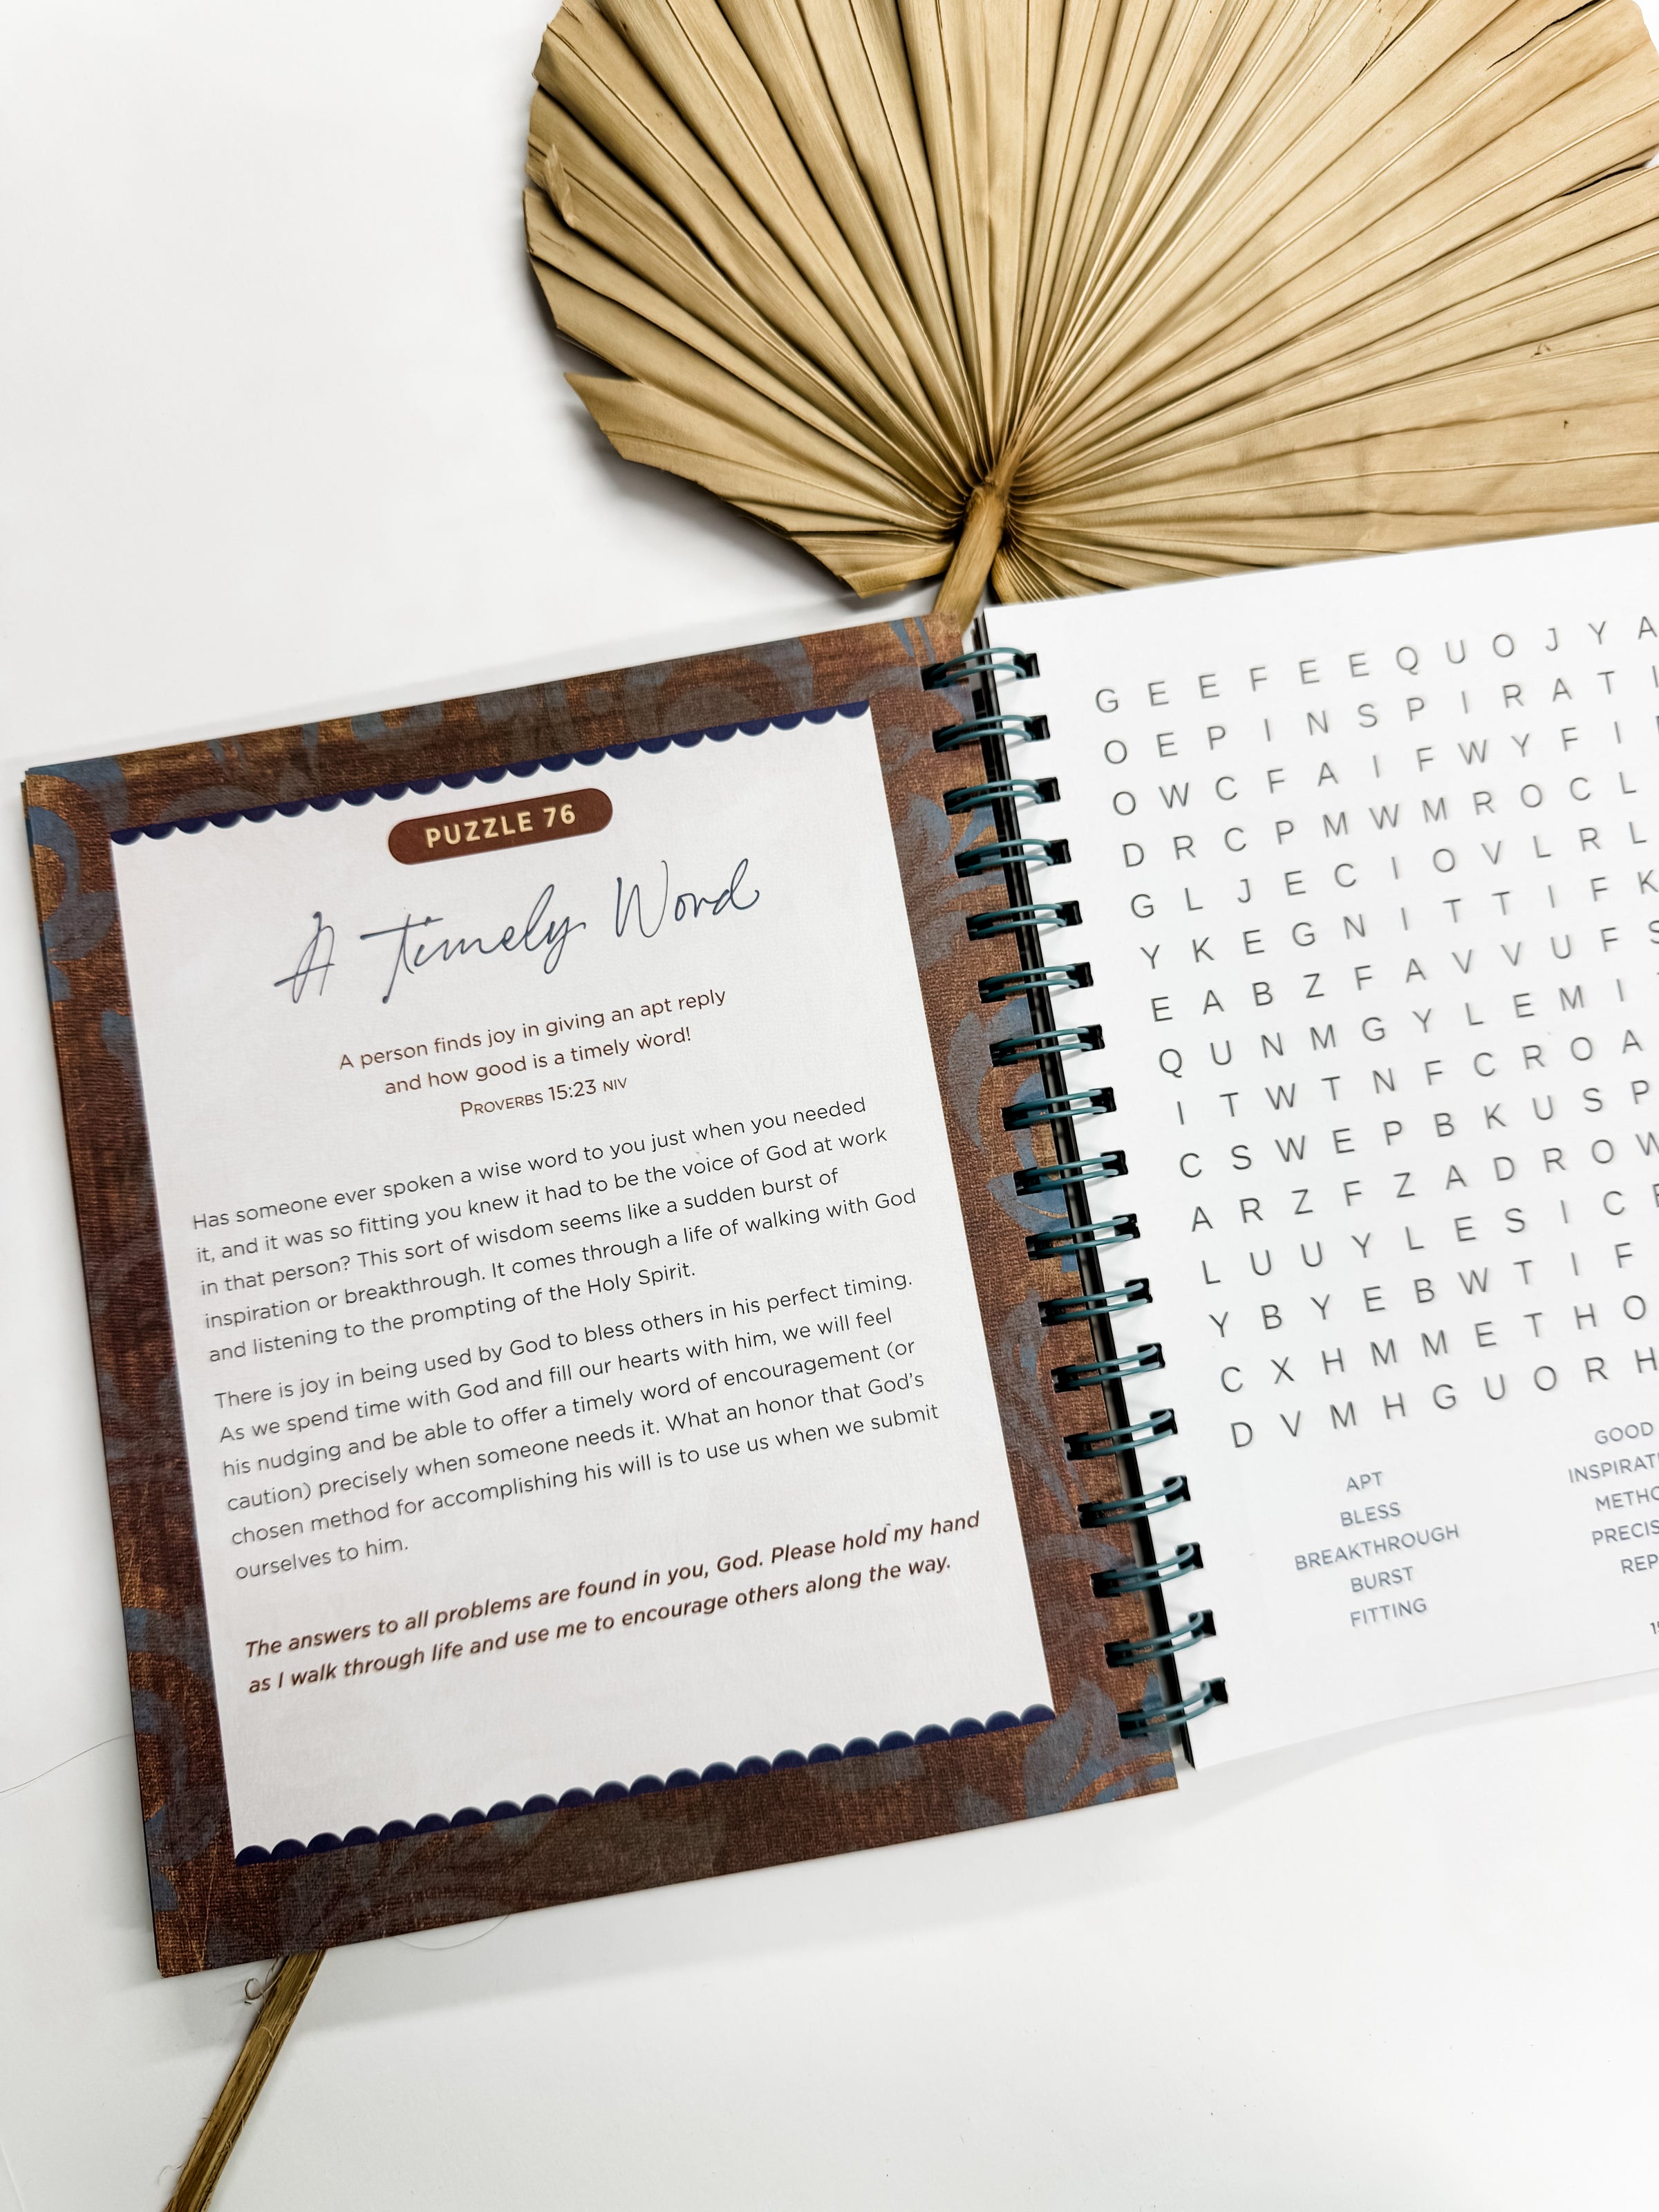 PUZZLE 76
A Timely Word
A person finds joy in giving an apt reply
and how good is a timely word!
PROVERBS 15:23 NIV
Has someone ever spoken a wise word to you just when you needed
it, and it was so fitting you knew it had to be the voice of God at work
in that person? This sort of wisdom seems like a sudden burst of
inspiration or breakthrough. It comes through a life of walking with God
and listening to the prompting of the Holy Spirit.
There is joy in being used by God to bless others in his perfect timing.
As we spend time with God and fill our hearts with him, we will feel
his nudging and be able to offer a timely word of encouragement (or
caution) precisely when someone needs it. What an honor that God's
chosen method for accomplishing his will is to use us when we submit
ourselves to him.
The answers to all problems are found in you, God. Please hold my hand
as I walk through life and use me to encourage others along the way.
G E E F E E Q U O J Y A
O E P I N S P I R A T I
O W C F A I F W Y F I
D R C P M W M R O C L
G L J E C I O V L R L
Y K E G N I T T I F K
E A B Z F A V V U F S
Q U N M G Y L E M I
I T W T N F C R O A
C S W E P B K U S P
A R Z F Z A D R O W
L U U Y L E S I C
Y B Y E B W T I F
C X H M M E T H O
D V M H G U O R H
APT
BLESS
BREAKTHROUGH
BURST
FITTING
GOOD
INSPIRATI
METHO
PRECIS
REP